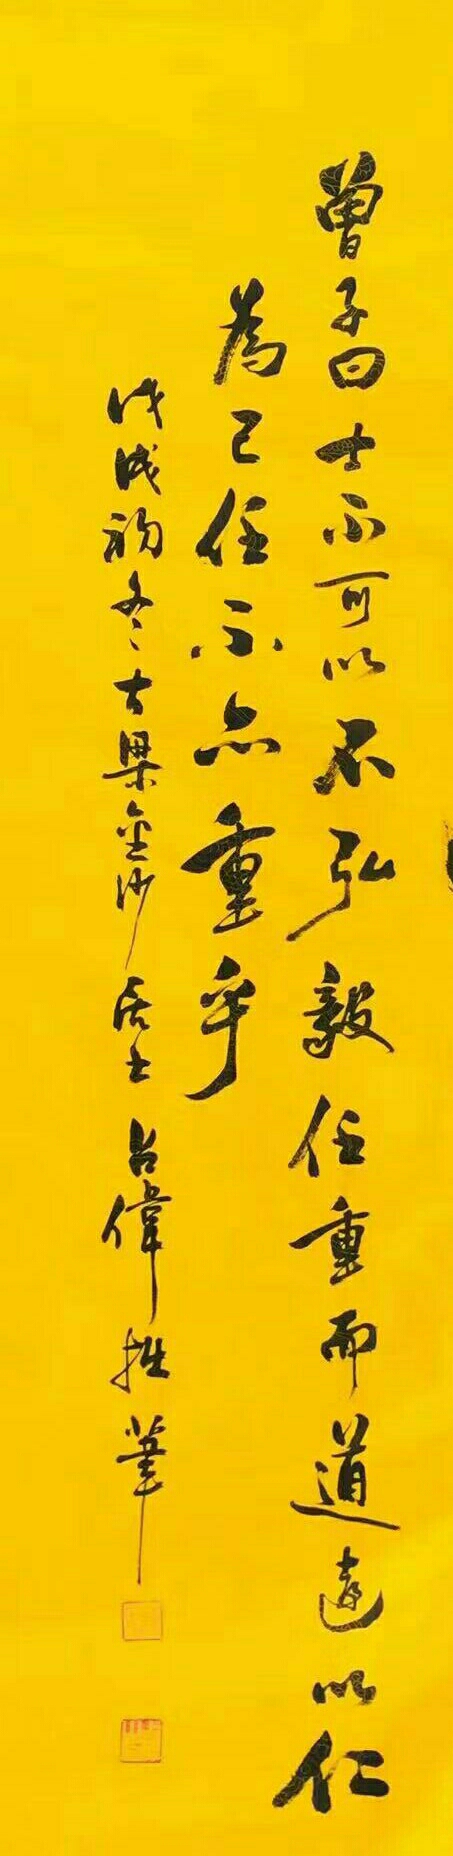 曾子曰士不可以不弘毅任重而道遠以仁
為己任不亦重乎
戊戌初冬古梁金沙居士占偉拙筆